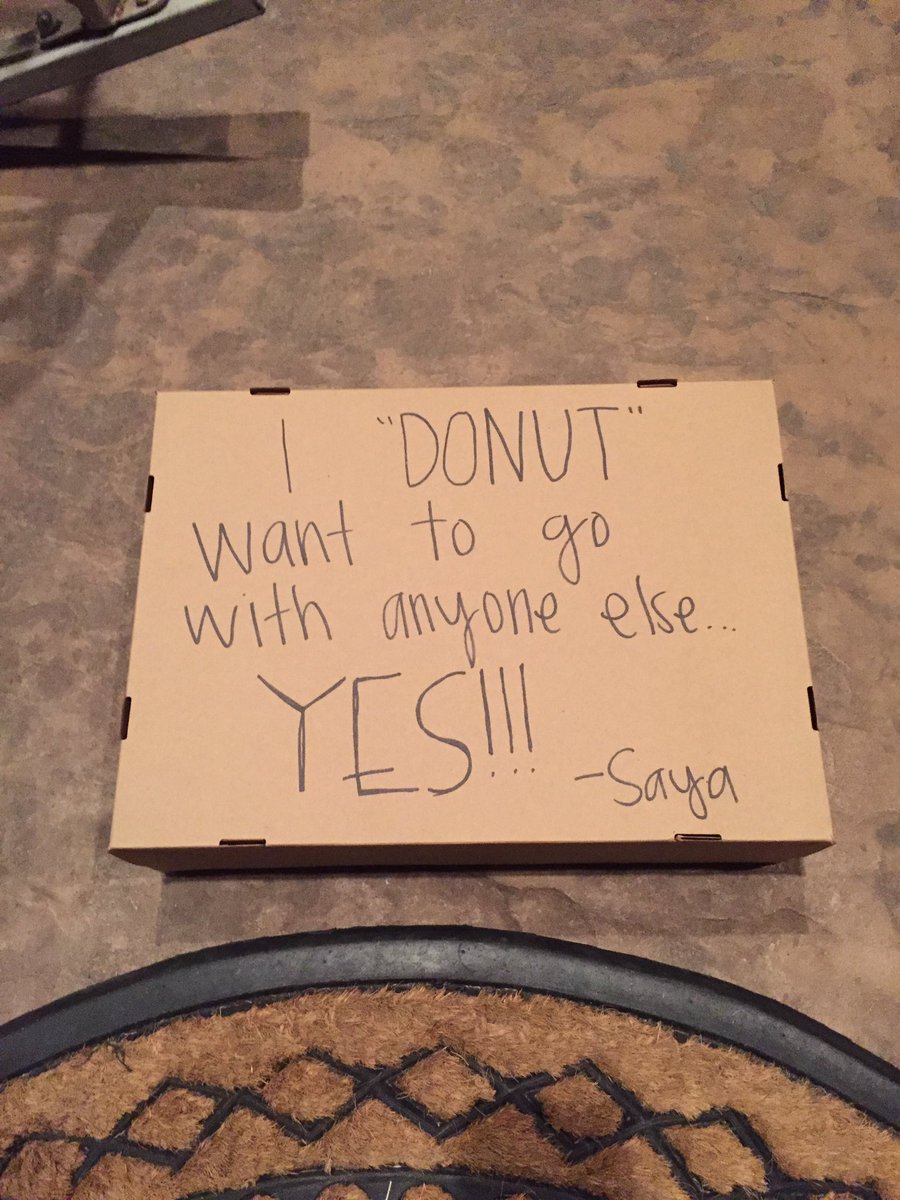 I "DONUT"
want to go
with anyone else...
YES!!!
-Saya